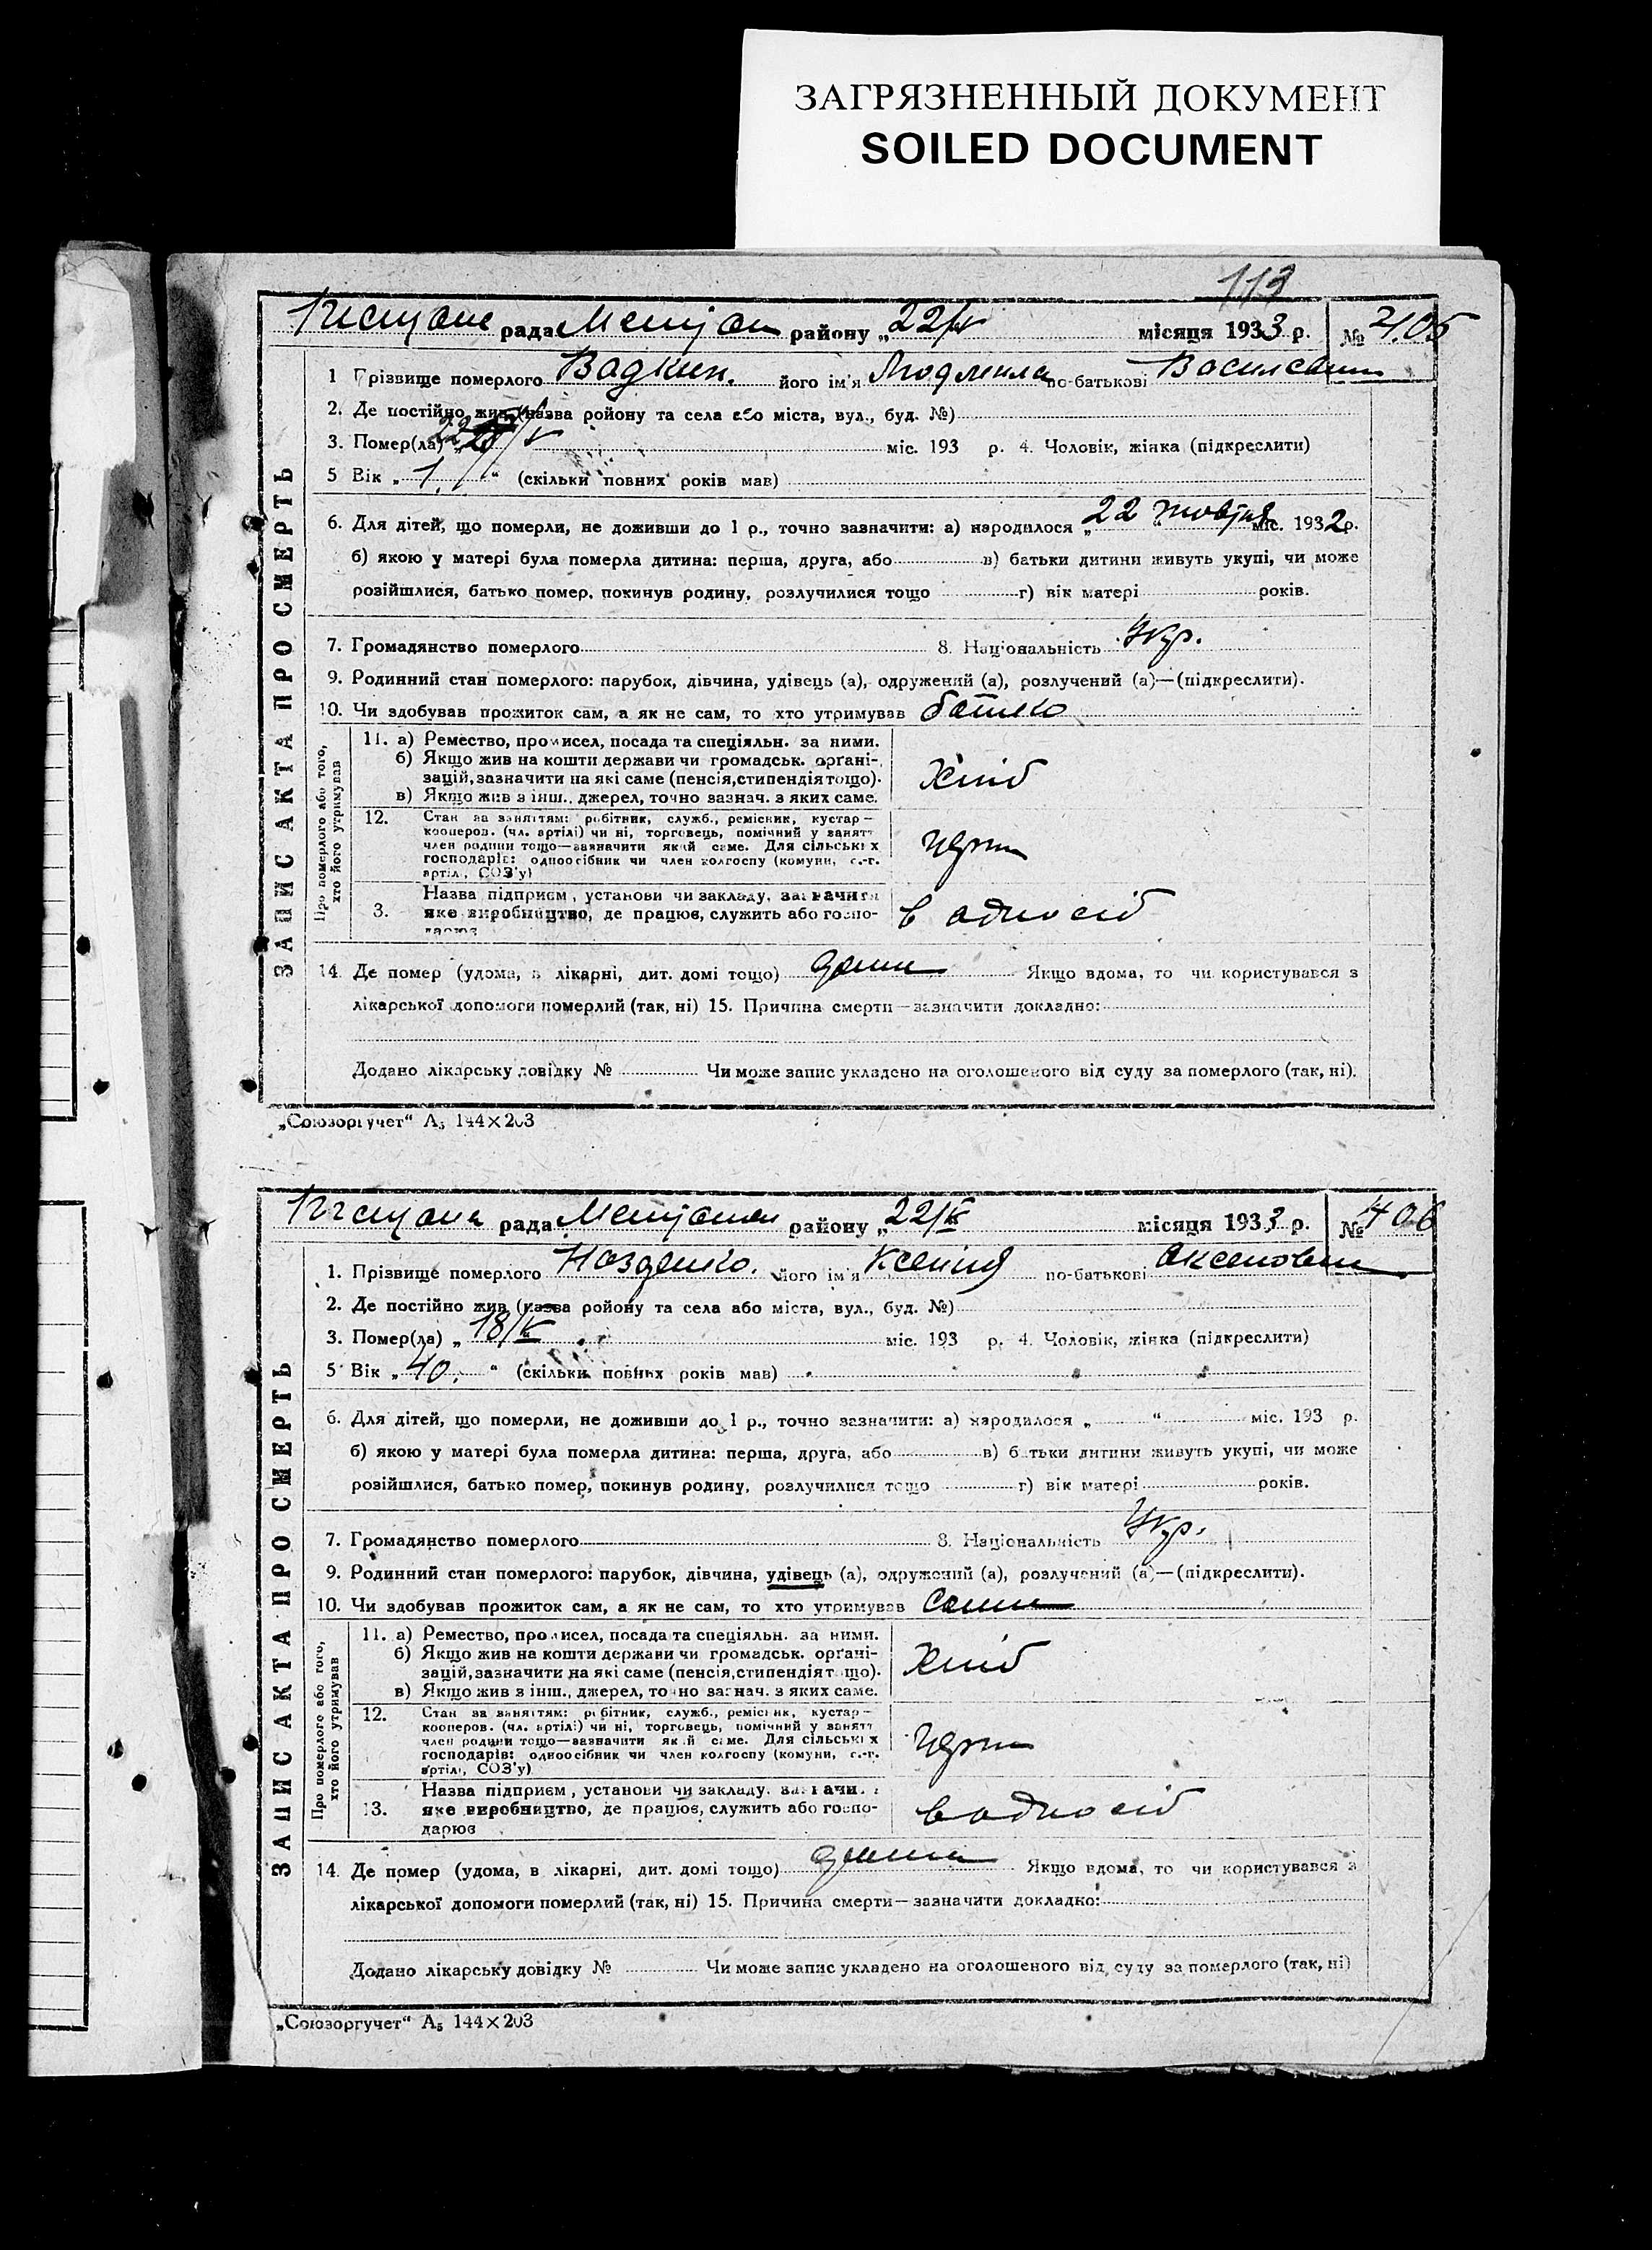 ЗАГРЯЗНЕННЫЙ ДОКУМЕНТ
SOILED DOCUMENT
113
рада район у „22/V місяця 1933 р. № 405
1 Прізвище померлого Вадкин. його ім'я Людмила по-батькові
2. Де постійно жив (назва ройону та села або міста, вул., буд. №)
3. Помер(ла) „22/V міс. 193 р. 4. Чоловік, жінка (підкреслити)
5 Вік „1." (скільки повних років мав)
6. Для дітей, що померли, не доживши до 1 р., точно зазначити: а) народилося „22" жовтня міс. 1932 р.
б) якою у матері була померла дитина: перша, друга, або в) батьки дитини живуть укупі, чи може
розійшлися, батько помер, покинув родину, розлучилися тощо г) вік матері років.
7. Громадянство померлого 8. Національність Укр.
9. Родинний стан померлого: парубок, дівчина, удівець (а), одружений (а), розлучений (а)—(підкреслити).
10. Чи здобував прожиток сам, а як не сам, то хто утримував батько
ЗАПИС АКТА ПРО СМЕРТЬ
Про померлого або того, хто його утримував
11. а) Ремество, промисел, посада та спеціяльн. за ними.
б) Якщо жив на кошти держави чи громадськ. орґані-
зацій, зазначити на які саме (пенсія, стипендія тощо).
в) Якщо жив з інш., джерел, точно зазнач. з яких саме.
Хліб
12. Стан за заняттям: робітник, служб., ремісник, кустар—
кооперов. (чл. артілі) чи ні, торговець, помічний у занятт
член родини тощо—зазначити який саме. Для сільських
господарів: одноосібник чи член колгоспу (комуни, с.-г.
артілі, СОЗ'у)
3. Назва підприєм, установи чи закладу, зазначити
яке виробництво, де працює, служить або госпо-
дарює
в одноосіб
14. Де помер (удома, в лікарні, дит. домі тощо) дома Якщо вдома, то чи користувався з
лікарської допомоги померлий (так, ні) 15. Причина смерти—зазначити докладно:
Додано лікарську довідку № Чи може запис укладено на оголошеного від суду за померлого (так, ні).
„Союзоргучет" А5 144×203
рада район у „22/V місяця 1933 р. № 406
1. Прізвище померлого його ім'я Ксенія по-батькові
2. Де постійно жив (назва ройону та села або міста, вул., буд. №)
3. Помер(ла) „18/V міс. 193 р. 4. Чоловік, жінка (підкреслити)
5 Вік „40." (скільки повних років мав)
6. Для дітей, що померли, не доживши до 1 р., точно зазначити: а) народилося „ " міс. 193 р.
б) якою у матері була померла дитина: перша, друга, або в) батьки дитини живуть укупі, чи може
розійшлися, батько помер, покинув родину, розлучилися тощо г) вік матері років.
7. Громадянство померлого 8. Національність Укр.
9. Родинний стан померлого: парубок, дівчина, удівець (а), одружений (а), розлучений (а)—(підкреслити).
10. Чи здобував прожиток сам, а як не сам, то хто утримував
ЗАПИС АКТА ПРО СМЕРТЬ
Про померлого або того, хто його утримував
11. а) Ремество, промисел, посада та спеціяльн. за ними.
б) Якщо жив на кошти держави чи громадськ. орґані-
зацій, зазначити на які саме (пенсія, стипендія тощо).
в) Якщо жив з інш., джерел, точно зазнач. з яких саме.
Хліб
12. Стан за заняттям: робітник, служб., ремісник, кустар—
кооперов. (чл. артілі) чи ні, торговець, помічний у занятт
член родини тощо—зазначити який саме. Для сільських
господарів: одноосібник чи член колгоспу (комуни, с.-г.
артілі, СОЗ'у)
13. Назва підприєм, установи чи закладу, зазначи
яке виробництво, де працює, служить або госпо-
дарює
в одноосіб
14. Де помер (удома, в лікарні, дит. домі тощо) дома Якщо вдома, то чи користувався з
лікарської допомоги померлий (так, ні) 15. Причина смерти—зазначити докладно:
Додано лікарську довідку № Чи може запис укладено на оголошеного від суду за померлого (так, ні)
„Союзоргучет" А5 144×203